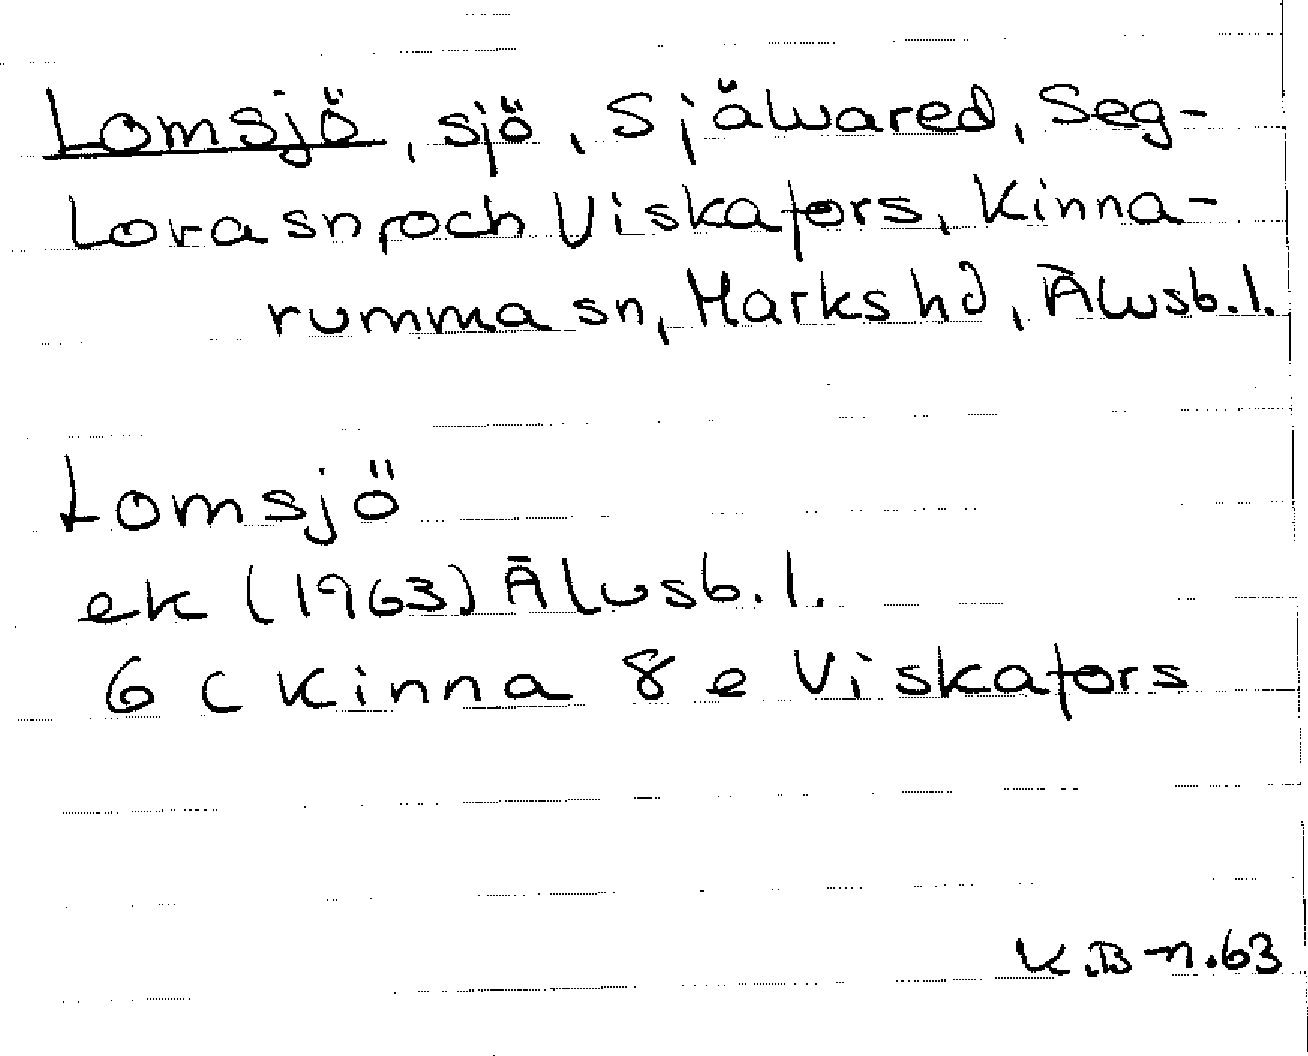 Lomsjö, sjö, Självared, Seg-
lora sn, och Viskafors, Kinna-
rumma sn, Marks hd, Älvsb. l.
Lomsjö
ek (1963) Älvsb. l.
6 c Kinna 8 e Viskafors
K.B-n.63